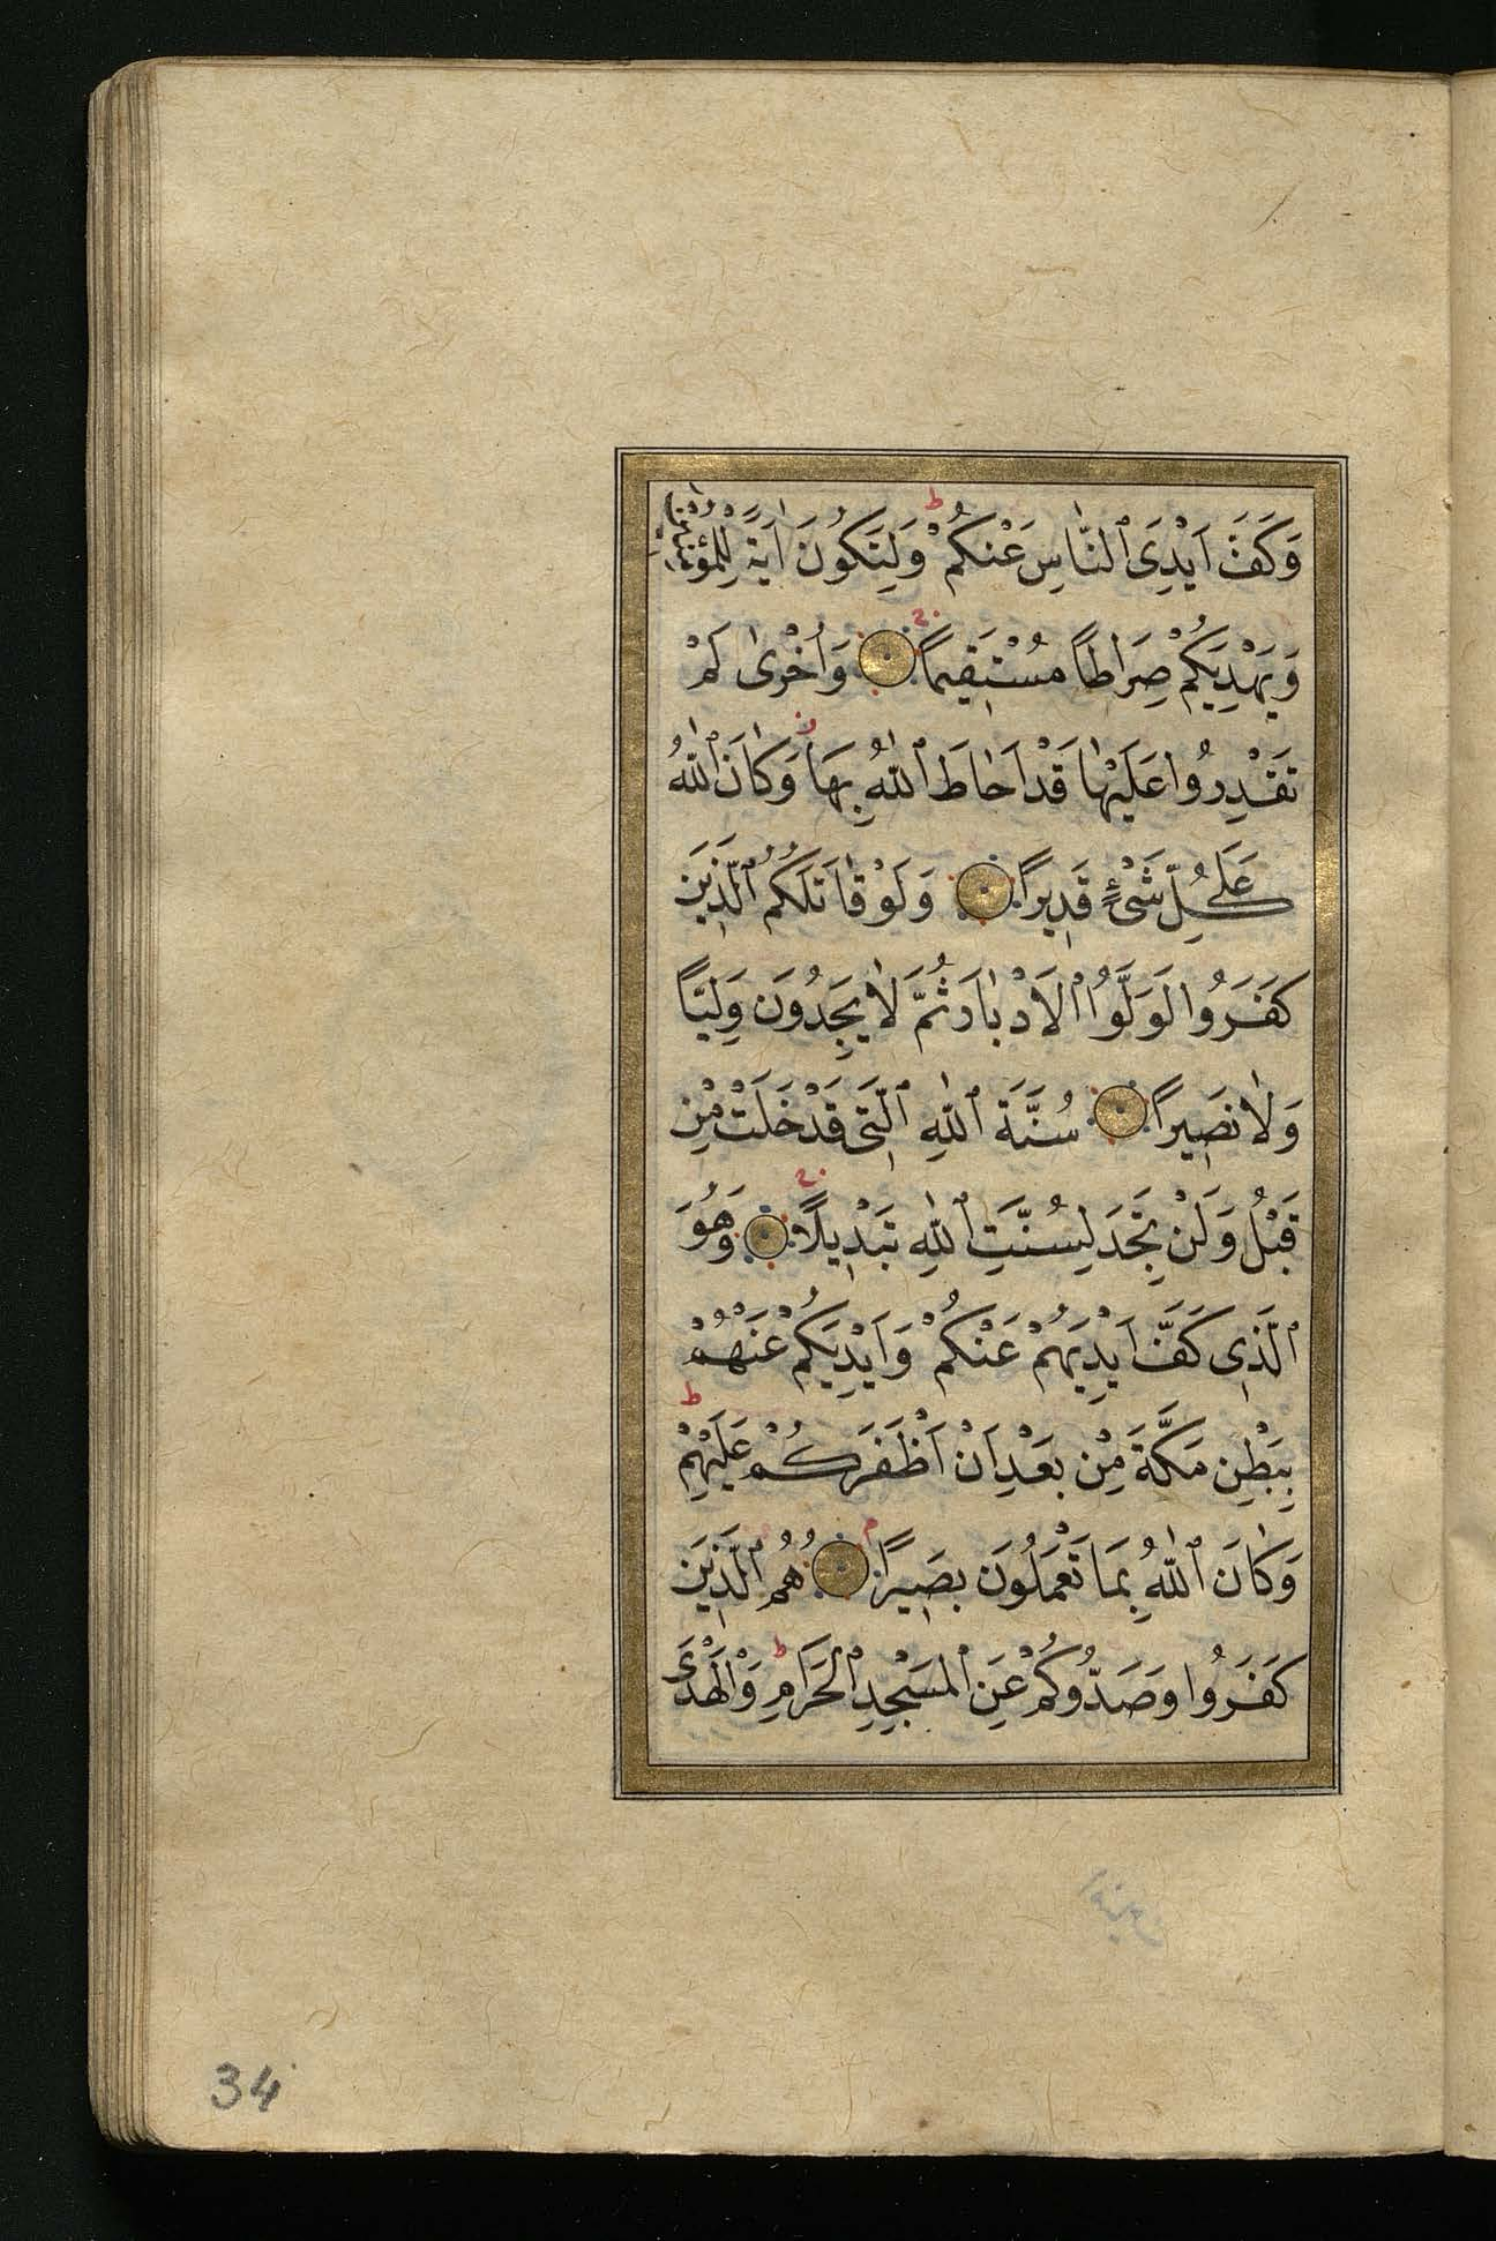 وَكَفَّ اَيْدِىَ ٱلنَّاسِ عَنْكُمْ ط وَلِتَكُونَ اٰيَةً لِلْمُؤْمِنٖينَ
وَيَهْدِيَكُمْ صِرَاطًا مُسْتَقٖيمًا وَاُخْرٰى لَمْ
تَقْدِرُوا عَلَيْهٰا قَدْ اَحٰاطَ ٱللّٰهُ بِهَا وَكٰانَ ٱللّٰهُ
عَلٰى كُلِّ شَىْءٍ قَدٖيرًا وَلَوْ قٰاتَلَكُمُ ٱلَّذٖينَ
كَفَرُوا لَوَلَّوُا ٱلْاَدْبٰارَ ثُمَّ لٰا يَجِدُونَ وَلِيًّا
وَلٰا نَصٖيرًا سُنَّةَ ٱللّٰهِ ٱلَّتٖى قَدْ خَلَتْ مِنْ
قَبْلُ وَلَنْ تَجِدَ لِسُنَّتِ ٱللّٰهِ تَبْدٖيلًا وَهُوَ
ٱلَّذٖى كَفَّ اَيْدِيَهُمْ عَنْكُمْ وَاَيْدِيَكُمْ عَنْهُمْ
بِبَطْنِ مَكَّةَ مِنْ بَعْدِ اَنْ اَظْفَرَكُمْ عَلَيْهِمْ ط
وَكٰانَ ٱللّٰهُ بِمَا تَعْمَلُونَ بَصٖيرًا م هُمُ ٱلَّذٖينَ
كَفَرُوا وَصَدُّوكُمْ عَنِ ٱلْمَسْجِدِ ٱلْحَرَامِ ط وَٱلْهَدْىَ
34